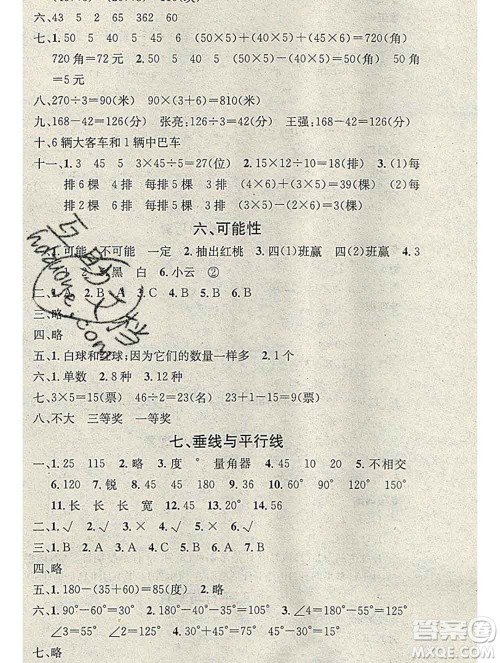 六、43 5 2 35 362 60
七、1.5 45 5 (50×5)+(45×5)+(50×5)=720(角)
720角=72元 2.50 45 50 (50+45+50)×5=50(角) 50角
=5元
八、270÷3=90(米) 90×3=270(米)
九、168-42=126(分) 张亮:126÷3=42(分) 王强:168-42=126(分)
十、6辆大客车和1辆中巴车
十一、1.3 45 5 3×45÷5=27(位) 2.15×12÷10=18(排) 3.(1)每
排6棵 4排 每排5棵 3排 6×4+5×3=39(棵) (2)每
六、可能性
一、1.可能 不可能 一定 2.抽出红桃 3.四(1)班赢 四(2)班赢 4.3
黑 白 6.小云 ②
三、略
四、略
五、1.白球和 球;因为它们的数量一样多 2.1个
六、1.单数 2.8种 3.12种
七、15-6=9(票) 24÷3=8(票) 23+1-15=9(票)
八、不大 三等奖 一等奖
七、垂线与平行线
一、1.25 115 2.略 3.度 ° 量角器 4.45 10 5.不相交
6.120 7.锐 8.45 90 135 180 9.180 360 10.120
11.长 长 长 宽 12.4 4 13.30
二、1.√ 2.√ 3.× 4.√ 5.√
三、1.B 2.A 3.C 4.B 5.B
四、略
五、1.略 2.180-(35+60)=85(度) 3.略
六、1.90°-60°=30° 2.180°-45°=135° 3.∠4=180°-55°=125°
∠3=55° ∠2=125° 4.∠2=180°-90°-55°=35°
七、略
互助文档
hdzuoye.com
作业帮手
MXQE.COM